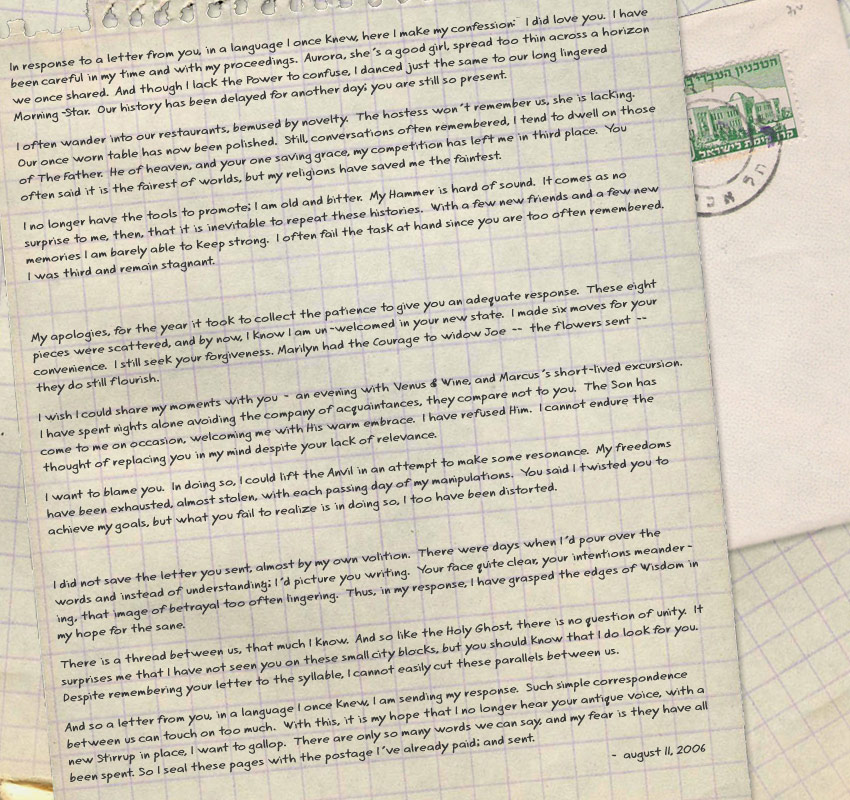 In response to a letter from you, in a language I once knew, here I make my confession: I did love you. I have
been careful in my time and with my proceedings. Aurora, she's a good girl, spread too thin across a horizon
we once shared. And though I lack the Power to confuse, I danced just the same to our long lingered
Morning-Star. Our history has been delayed for another day; you are still so present.
I often wander into our restaurants, bemused by novelty. The hostess won't remember us, she is lacking.
Our once worn table has now been polished. Still, conversations often remembered, I tend to dwell on those
of The Father. He of heaven, and your one saving grace, my competition has left me in third place. You
often said it is the fairest of worlds, but my religions have saved me the faintest.
I no longer have the tools to promote; I am old and bitter. My Hammer is hard of sound. It comes as no
surprise to me, then, that it is inevitable to repeat these histories. With a few new friends and a few new
memories I am barely able to keep strong. I often fail the task at hand since you are too often remembered.
I was third and remain stagnant.
My apologies, for the year it took to collect the patience to give you an adequate response. These eight
pieces were scattered, and by now, I know I am un-welcomed in your new state. I made six moves for your
convenience. I still seek your forgiveness. Marilyn had the Courage to widow Joe -- the flowers sent --
they do still flourish.
I wish I could share my moments with you - an evening with Venus & Wine, and Marcus's short-lived excursion.
I have spent nights alone avoiding the company of acquaintances, they compare not to you. The Son has
come to me on occasion, welcoming me with His warm embrace. I have refused Him. I cannot endure the
thought of replacing you in my mind despite your lack of relevance.
I want to blame you. In doing so, I could lift the Anvil in an attempt to make some resonance. My freedoms
have been exhausted, almost stolen, with each passing day of my manipulations. You said I twisted you to
achieve my goals, but what you fail to realize is in doing so, I too have been distorted.
I did not save the letter you sent, almost by my own volition. There were days when I'd pour over the
words and instead of understanding; I'd picture you writing. Your face quite clear, your intentions meander-
ing, that image of betrayal too often lingering. Thus, in my response, I have grasped the edges of Wisdom in
my hope for the sane.
There is a thread between us, that much I know. And so like the Holy Ghost, there is no question of unity. It
surprises me that I have not seen you on these small city blocks, but you should know that I do look for you.
Despite remembering your letter to the syllable, I cannot easily cut these parallels between us.
And so a letter from you, in a language I once knew, I am sending my response. Such simple correspondence
between us can touch on too much. With this, it is my hope that I no longer hear your antique voice, with a
new Stirrup in place, I want to gallop. There are only so many words we can say, and my fear is they have all
been spent. So I seal these pages with the postage I've already paid; and sent.
- august 11, 2006